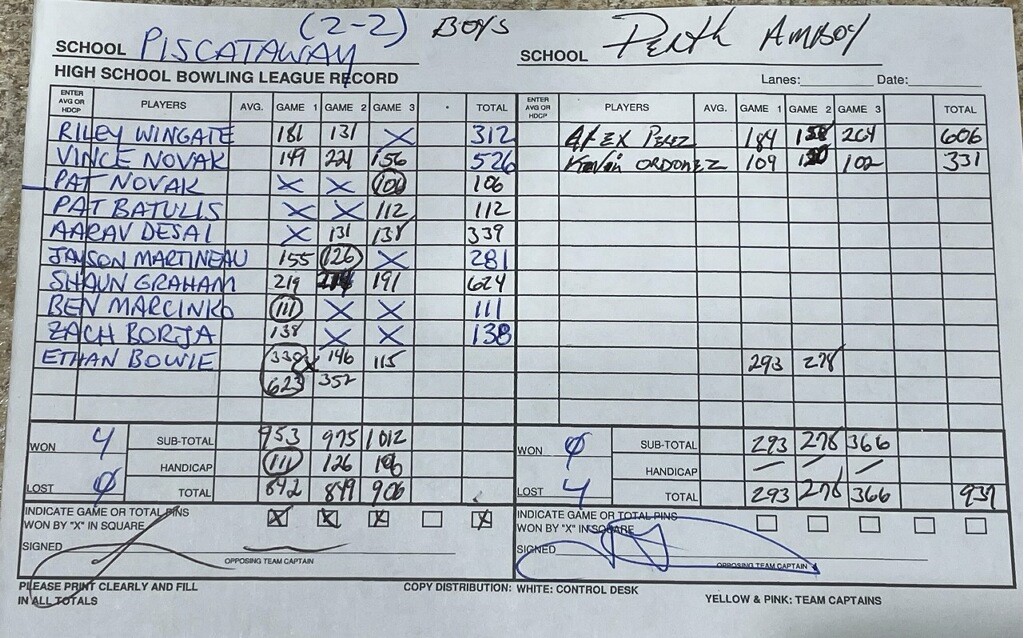 (2-2) BOYS
SCHOOL PISCATAWAY SCHOOL Perth AMBOY
HIGH SCHOOL BOWLING LEAGUE RECORD Lanes: Date:
ENTER AVG OR HDCP PLAYERS AVG. GAME 1 GAME 2 GAME 3 TOTAL ENTER AVG OR HDCP PLAYERS AVG. GAME 1 GAME 2 GAME 3 TOTAL
RILEY WINGATE 181 131 X 312 ALEX Perez 184 158 264 606
VINCE NOVAK 149 221 156 526 Kevin ORDONEZ 109 120 102 331
PAT NOVAK X X 106 106
PAT BATULIS X X 112 112
AARAV DESAI X 131 138 339
JAYSON MARTINEAU 155 126 X 281
SHAUN GRAHAM 219 214 191 624
BEN MARCINKO 111 X X 111
ZACH BORJA 138 X X 138
ETHAN BOWIE 338 X 146 115 293 278
623 352
WON 4 SUB-TOTAL 953 975 1012 WON 0 SUB-TOTAL 293 278 366
HANDICAP 111 126 106 HANDICAP
LOST 0 TOTAL 842 849 906 LOST 4 TOTAL 293 278 366 937
INDICATE GAME OR TOTAL PINS WON BY "X" IN SQUARE X X X X INDICATE GAME OR TOTAL PINS WON BY "X" IN SQUARE
SIGNED SIGNED
OPPOSING TEAM CAPTAIN OPPOSING TEAM CAPTAIN
PLEASE PRINT CLEARLY AND FILL COPY DISTRIBUTION: WHITE: CONTROL DESK
IN ALL TOTALS YELLOW & PINK: TEAM CAPTAINS